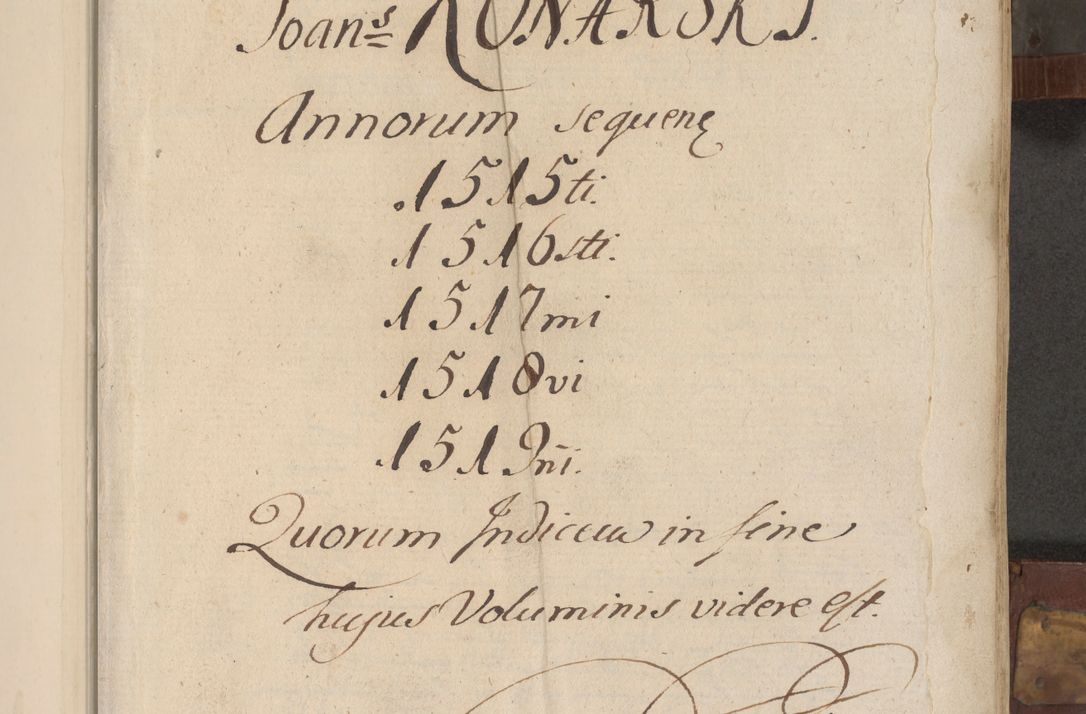 Joan̄s KONARSKI.
Annorum sequenę
1515ti.
1516sti.
1517mi
1518vi
1519ni.
Quorum Indicem in fine
hujus Voluminis videre est.